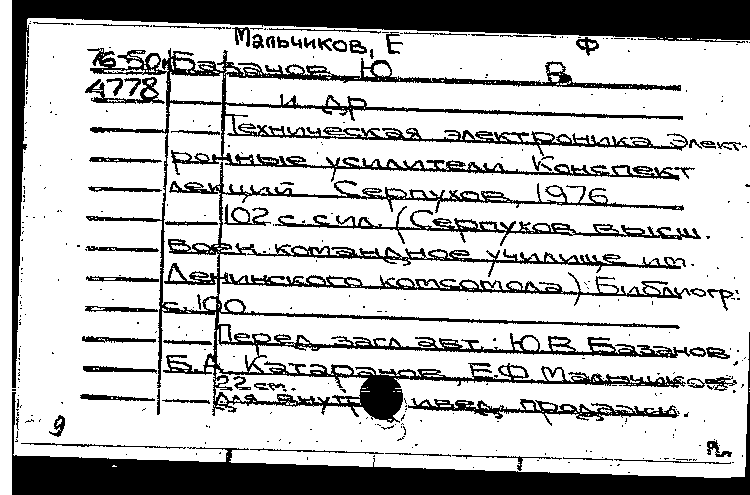 Мальчиков, Е Ф
76-50
4778
Базанов, Ю В.
и др
Техническая электроника Элект-
ронные усилители. Конспект
лекций Серпухов, 1976.
102 с. с ил. (Серпухов высш.
воен. командное училище им.
Ленинского комсомола) Библиогр:
с. 100.
Перед загл авт.: Ю.В Базанов,
Б.А Катаранов, Е.Ф Мальчиков.
22 см.
Для внутр ивед, продажи.
9